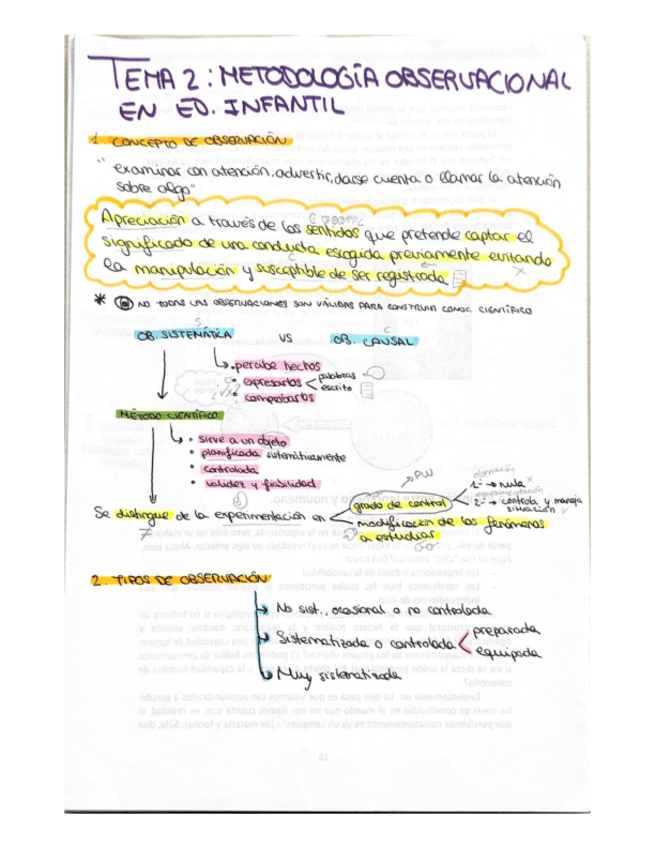 TEMA 2: METODOLOGÍA OBSERVACIONAL
EN ED. INFANTIL
1. CONCEPTO DE OBSERVACIÓN
"examinar con atención, advertir, darse cuenta o llamar la atención
sobre algo"
Apreciación a través de los sentidos que pretende captar el
significado de una conducta escogida previamente evitando
la manipulación y susceptible de ser registrada
* NO TODAS LAS OBSERVACIONES SON VÁLIDAS PARA CONSTRUIR CONOC. CIENTÍFICO
S C
OB. SISTEMÁTICA VS OB. CAUSAL
• percibe hechos
• expresarlos < palabras
escrito
• comprobarlos
MÉTODO CIENTÍFICO
• sirve a un objeto
• planificada sistemáticamente
• controlada
• validez y fiabilidad
observación
1º → nula
experimentación
2º → controla y maneja
situación
grado de control
Se distingue de la experimentación en
modificación de los fenómenos
a estudiar
2. TIPOS DE OBSERVACIÓN
→ No sist., ocasional o no controlada
→ Sistematizada o controlada < preparada
equipada
→ Muy sistematizada